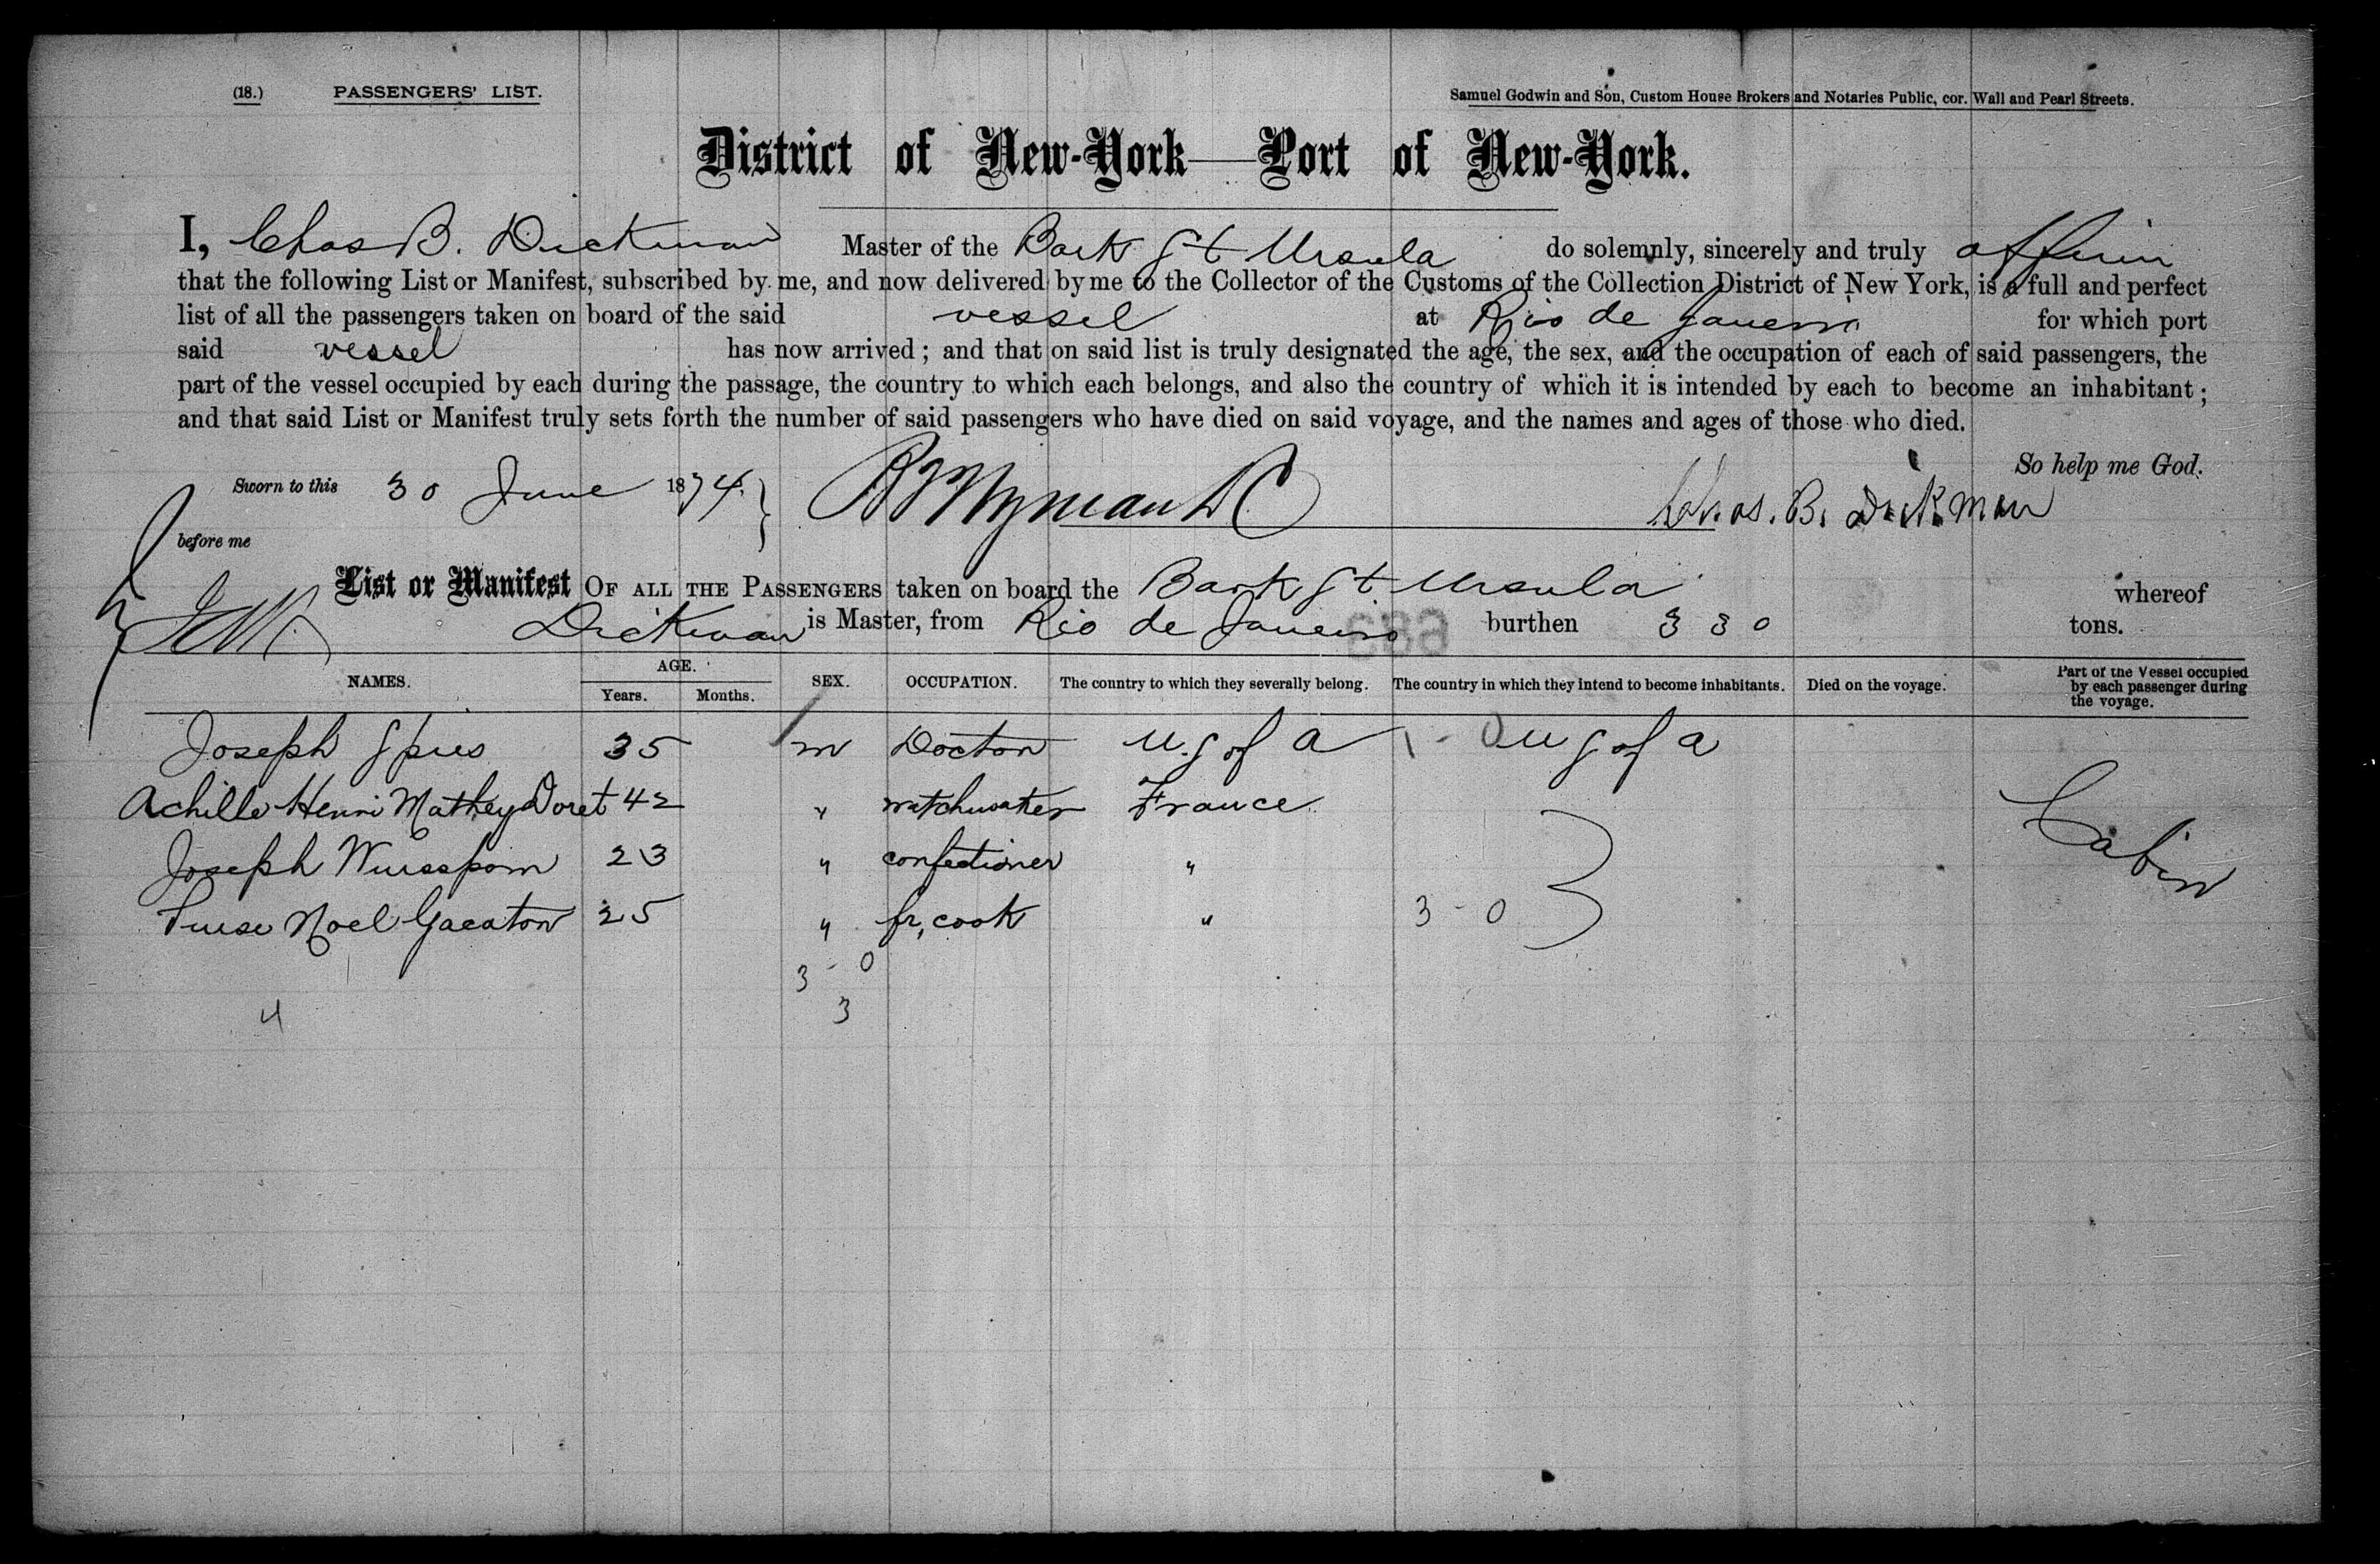 (18.) PASSENGERS' LIST. Samuel Godwin and Son, Custom House Brokers and Notaries Public, cor. Wall and Pearl Streets.
District of New-York—Port of New-York.
I, Chas B. Dickman Master of the Bark St Ursula do solemnly, sincerely and truly affirm
that the following List or Manifest, subscribed by me, and now delivered by me to the Collector of the Customs of the Collection District of New York, is a full and perfect
list of all the passengers taken on board of the said vessel at Rio de Janeiro for which port
said vessel has now arrived; and that on said list is truly designated the age, the sex, and the occupation of each of said passengers, the
part of the vessel occupied by each during the passage, the country to which each belongs, and also the country of which it is intended by each to become an inhabitant;
and that said List or Manifest truly sets forth the number of said passengers who have died on said voyage, and the names and ages of those who died.
So help me God.
Sworn to this 30 June 1874. Chas. B. Dickman
before me
List or Manifest OF ALL THE PASSENGERS taken on board the Bark St Ursula whereof
Dickman is Master, from Rio de Janeiro burthen 330 tons.
NAMES. AGE. Years. Months. SEX. OCCUPATION. The country to which they severally belong. The country in which they intend to become inhabitants. Died on the voyage. Part of the Vessel occupied by each passenger during the voyage.
Joseph Spies 35 m Doctor U.S of A 1 - 0 U S of A
Achille Henri Mathey Doret 42 " watchmaker France
Joseph 23 " confectioner "
Noel 25 " fr, cook " 3 - 0
Cabin
3 - 0
4 3